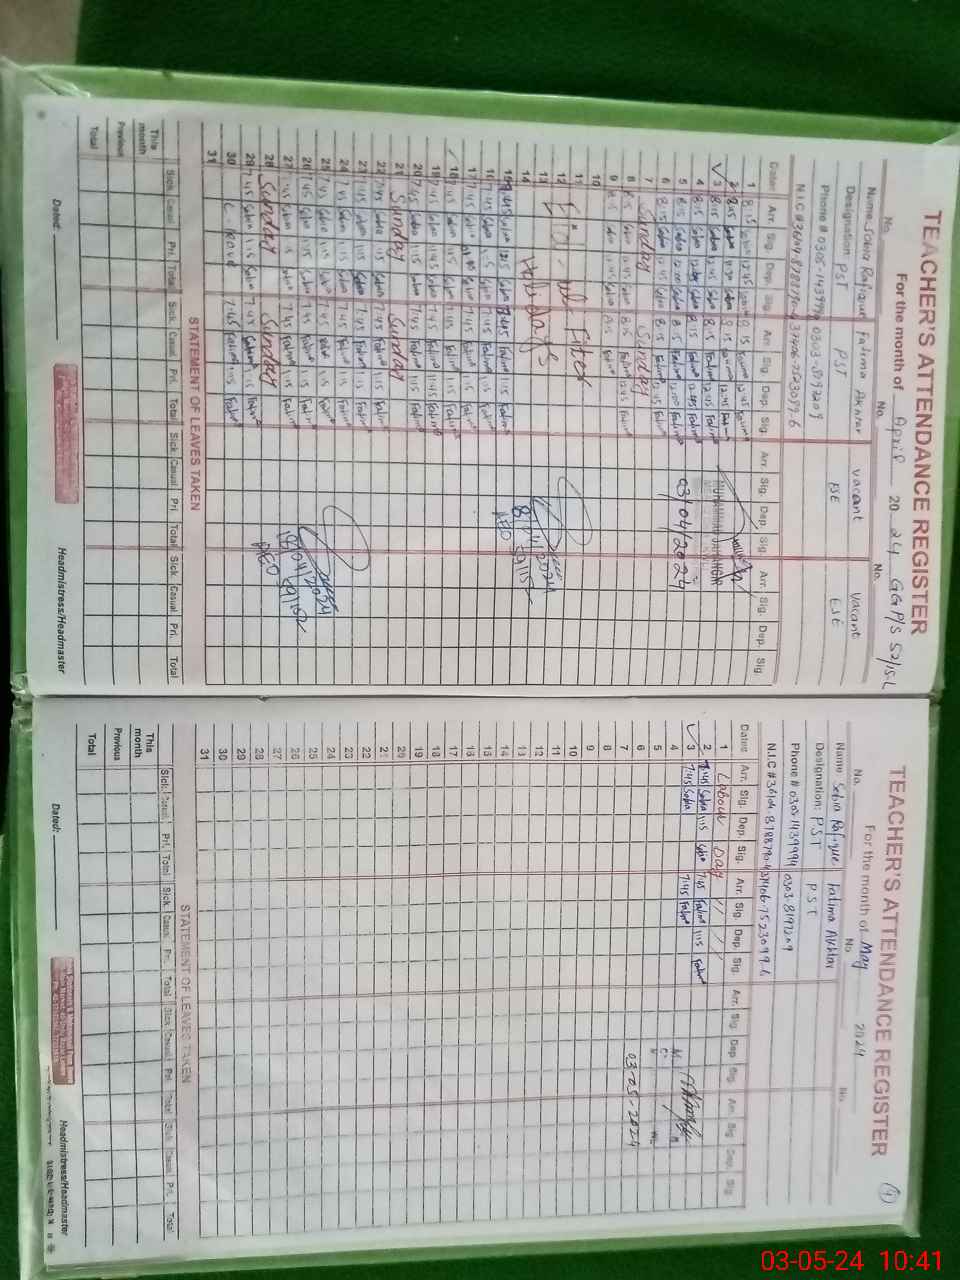 TEACHER'S ATTENDANCE REGISTER
For the month of April 2024 GGP/S 52/15-L
No. No. No.
Name Sobia Rafique Fatima Akhtar vacant vacant
Designation: PST PST ESE ESE
Phone # 0305-1439994 0303-8197209
N.I.C #
Dates Arr. Sig. Dep. Sig. Arr. Sig. Dep. Sig. Arr. Sig. Dep. Sig. Arr. Sig. Dep. Sig.
1 8:15 Sobia 12:45 Sobia 8:15 Fatima 12:45 Fatima
2 8:15 Sobia 12:45 Fatima
3 8:15 Sobia 12:45 Sobia 8:15 Fatima 12:45 Fatima
4 8:15 Sobia 12:45 Fatima
5 8:15 Sobia 12:00 Sobia 8:15 Fatima 12:00 Fatima
03/04/2024
6 8:15 Sobia 12:45 Sobia 8:15 Fatima 12:45 Fatima
7 Sunday Sunday
8 8:15 Sobia 12:45 Sobia 8:15 Fatima 12:45 Fatima
9 8:15 Sobia 12:45 Sobia 8:15 Fatima 12:45 Fatima
10
11 Eid-ul-Fiter
12
13 Holidays
14
15 7:45 Sobia 1:15 Sobia 7:45 Fatima 1:15 Fatima
AEO
16 7:45 Sobia 1:15 Sobia 7:45 Fatima 1:15 Fatima
17 7:45 Sobia Sobia 7:45 Fatima 1:15 Fatima
18 7:45 Sobia 1:15 Sobia 7:45 Fatima 1:15 Fatima
19 7:45 Sobia 11:45 Sobia 7:45 Fatima 11:45 Fatima
20 7:45 Sobia 1:15 Sobia 7:45 Fatima 1:15 Fatima
21 Sunday Sunday
22 7:45 Sobia 1:15 Sobia 7:45 Fatima 1:15 Fatima
23 7:45 Sobia 1:15 Sobia 7:45 Fatima 1:15 Fatima
24 7:45 Sobia 1:15 Sobia 7:45 Fatima 1:15 Fatima
25 7:45 Sobia 1:15 Sobia 7:45 Fatima 1:15 Fatima
26 7:45 Sobia 1:15 Sobia 7:45 Fatima 1:15 Fatima
27 7:45 Sobia 1:15 Sobia 7:45 Fatima 1:15 Fatima
AEO
28 Sunday Sunday
29 7:45 Sobia 1:15 Sobia 7:45 Fatima 1:15 Fatima
30 7:45 Fatima 1:15 Fatima
31
STATEMENT OF LEAVES TAKEN
Sick. Casual. Pri. Total Sick. Casual. Pri. Total Sick. Casual. Pri. Total Sick. Casual. Pri. Total
This month
Previous
Total
Dated: Headmistress/Headmaster
TEACHER'S ATTENDANCE REGISTER
4
For the month of May 2024
No. No No
Name Sobia Rafique Fatima Akhtar
Designation: PST PST
Phone # 0305-1439994 0303-8197209
N.I.C #
Dates Arr. Sig. Dep. Sig. Arr. Sig. Dep. Sig. Arr. Sig. Dep Sig. Arr. Sig. Dep. Sig.
1 Labour Day
2 7:45 Sobia 1:15 Sobia 7:45 Fatima 1:15 Fatima
3 7:45 Sobia 7:45 Fatima
4
5
6
7 03-05-2024
8
9
10
11
12
13
14
15
16
17
18
19
20
21
22
23
24
25
26
27
28
29
30
31
STATEMENT OF LEAVES TAKEN
Sick. Casual. Pri. Total Sick. Casual. Pri. Total Sick. Casual. Pri. Total Sick. Casual. Pri. Total
This month
Previous
Total
Dated: Headmistress/Headmaster
03-05-24 10:41